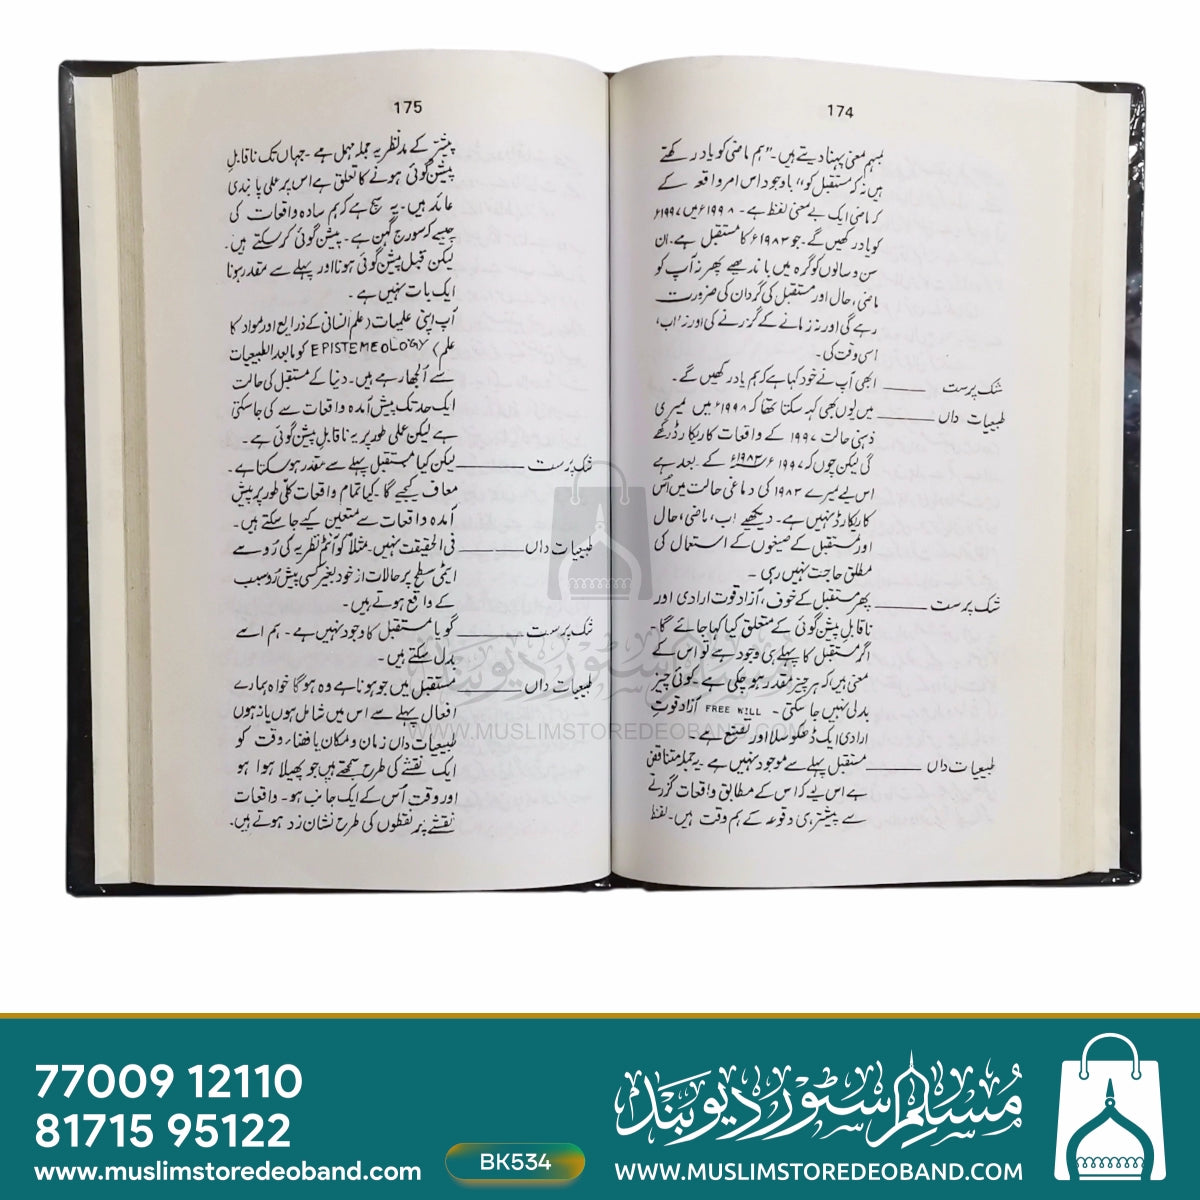 174
بسہم معنی پہنا دیتے ہیں۔ ”ہم ماضی کو یاد رکھتے
ہیں نہ کہ مستقبل کو“ باوجود اس امر واقعہ کے
کہ ماضی ایک بے معنی لفظ ہے۔ ۱۹۹۸ء میں ۱۹۹۷ء
کو یاد رکھیں گے۔ جو ۱۹۸۳ء کا مستقبل ہے۔ ان
سن و سالوں کو گرہ میں باندھیے پھر نہ آپ کو
ماضی، حال اور مستقبل کی گردان کی ضرورت
رہے گی اور نہ زمانے کے گزرنے کی اور نہ اب،
اسی وقت کی۔
شک پرست ـــــ ابھی آپ نے خود کہا ہے کہ ہم یاد رکھیں گے۔
طبیعیات داں ـــــ میں یوں بھی کہہ سکتا تھا کہ ۱۹۹۸ء میں میری
ذہنی حالت ۱۹۹۷ کے واقعات کا ریکارڈ رکھے
گی لیکن چوں کہ ۱۹۹۷ء ۱۹۸۳ء کے بعد ہے
اس لیے میرے ۱۹۸۳ کی دماغی حالت میں اُس
کا ریکارڈ نہیں ہے۔ دیکھیے اب، ماضی، حال
اور مستقبل کے صیغوں کے استعمال کی
مطلق حاجت نہیں رہی۔
شک پرست ـــــ پھر مستقبل کے خوف، آزاد قوت ارادی اور
ناقابل پیش گوئی کے متعلق کیا کہا جائے گا۔
اگر مستقبل کا پہلے ہی وجود ہے تو اس کے
معنی ہیں کہ ہر چیز مقدر ہو چکی ہے۔ کوئی چیز
بدلی نہیں جا سکتی۔ FREE WILL آزاد قوتِ
ارادی ایک ڈھکوسلا اور تصنع ہے۔
طبیعیات داں ـــــ مستقبل پہلے سے موجود نہیں ہے۔ یہ جملہ متناقض
ہے اس لیے کہ اس کے مطابق واقعات گزرتے
سے پیشتر ہی وقوعہ کے ہم وقت ہیں۔ لفظ
175
پیشتر کے مدنظر یہ جملہ مہمل ہے۔ جہاں تک ناقابلِ
پیشن گوئی ہونے کا تعلق ہے اس پر علمی پابندی
عائد ہیں۔ یہ سچ ہے کہ ہم سادہ واقعات کی
جیسے کہ سورج گہن ہے۔ پیشن گوئی کر سکتے ہیں۔
لیکن قبل پیشن گوئی ہونا اور پہلے سے مقدر ہونا
ایک بات نہیں ہے۔
آپ اپنی علمیات (علم انسانی کے ذرایع اور مواد کا
علم) EPISTEMEOLOGY کو مابعد الطبیعیات
سے اُلجھا رہے ہیں۔ دنیا کے مستقبل کی حالت
ایک حد تک پیش آمدہ واقعات سے کی جا سکتی
ہے لیکن عملی طور پر یہ ناقابل پیشن گوئی ہے۔
شک پرست ـــــ لیکن کیا مستقبل پہلے سے مقدر ہو سکتا ہے۔
معاف کیجیے گا۔ کیا تمام واقعات کلّی طور پر پیش
آمدہ واقعات سے متعین کیے جا سکتے ہیں۔
طبیعیات داں ـــــ فی الحقیقت نہیں۔ مثلاً کوانٹم نظریہ کی رُو سے
ایٹمی سطح پر حالات از خود بغیر کسی پیش رو سبب
کے واقع ہوتے ہیں۔
شک پرست ـــــ گویا مستقبل کا وجود نہیں ہے۔ ہم اسے
بدل سکتے ہیں۔
طبیعیات داں ـــــ مستقبل میں جو ہونا ہے وہ ہوگا خواہ ہمارے
افعال پہلے سے اس میں شامل ہوں یا نہ ہوں
طبیعیات داں زمان و مکان یا فضاء وقت کو
ایک نقشے کی طرح سمجھتے ہیں جو پھیلا ہوا ہو
اور وقت اُس کے ایک جانب ہو۔ واقعات
نقشے پر نقطوں کی طرح نشان زد ہوتے ہیں۔
مسلم سٹور دیوبند
WWW.MUSLIMSTOREDEOBAND.COM
77009 12110
81715 95122
www.muslimstoredeoband.com
BK534
مسلم سٹور دیوبند
WWW.MUSLIMSTOREDEOBAND.COM